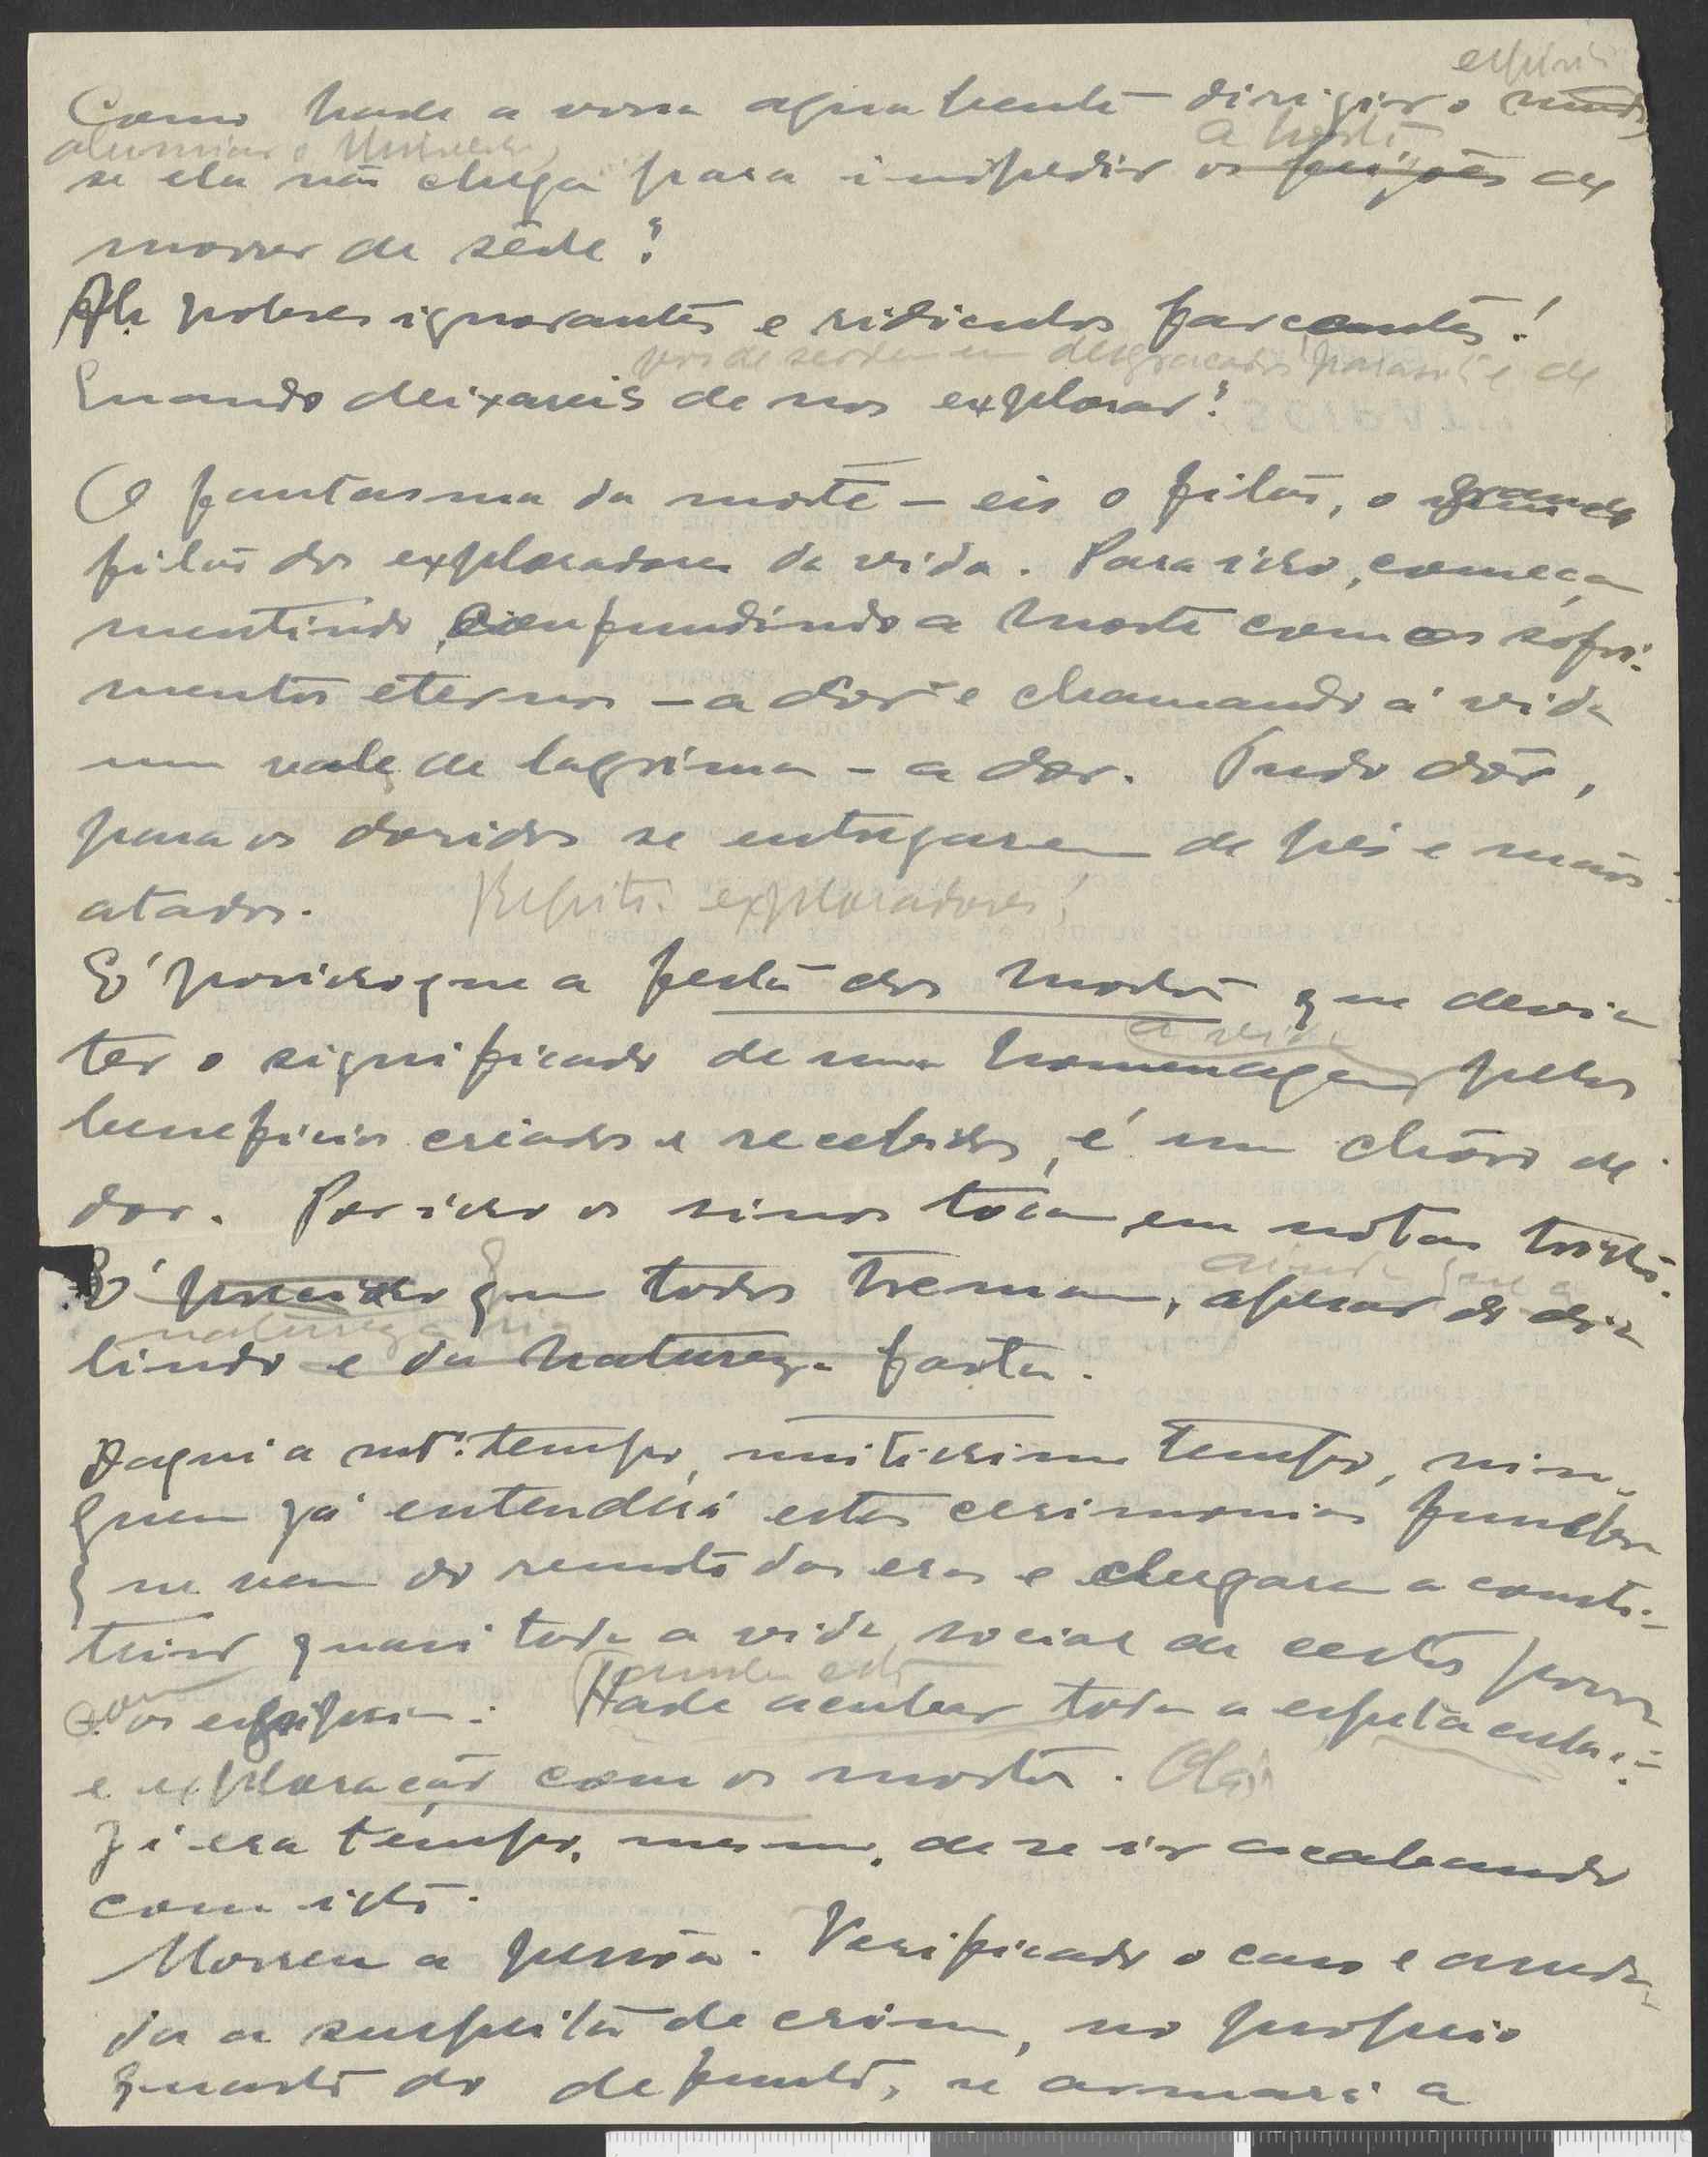 espirito
Como hade a vossa agua benta dirigir o mundo,
alumiar o Universo,
se ela não chega para impedir os feijões de
morrer de sêde?
Ah pobres ignorantes e ridiculos farçantes!
vos de serdes uns desgraçados parasitas e de
Quando deixareis de nos explorar?
O fantasma da morte - eis o filão, o grande
filão dos exploradores da vida. Para isso, começam
mentindo, confundindo a morte com os sofri-
mentos eternos - a dor e chamando á vida
um vale de lagrimas - a dor. Tudo dôr,
para os doridos se entregarem de pés e mãos
atados. Repito: exploradores!
E' por isso que a festa dos mortos que devia
a vida
ter o significado de uma homenagem pelos
beneficios criados e recebidos, é um chôro de
dor. Por isso os sinos tocam em notas tristes.
ainda que a
E' por isso que todos tremem, apesar do dia
natureza ria
lindo e da natureza farta.
Daqui a mtº tempo, muitissimo tempo, nin-
guem já entenderá estas cerimonias funebres
que vem do remoto das eras e chegaram a consti-
tuir quasi toda a vida social de certos povos
como os egipcios. Hade acabar toda a espetaculosi-
e exploração com os mortos. Olá!
Já era tempo, mesmo, de se ir acabando
com isto.
Morreu a pessôa. Verificado o caso e arreda-
da a suspeita de crime, no proprio
quarto do defunto, se armará a